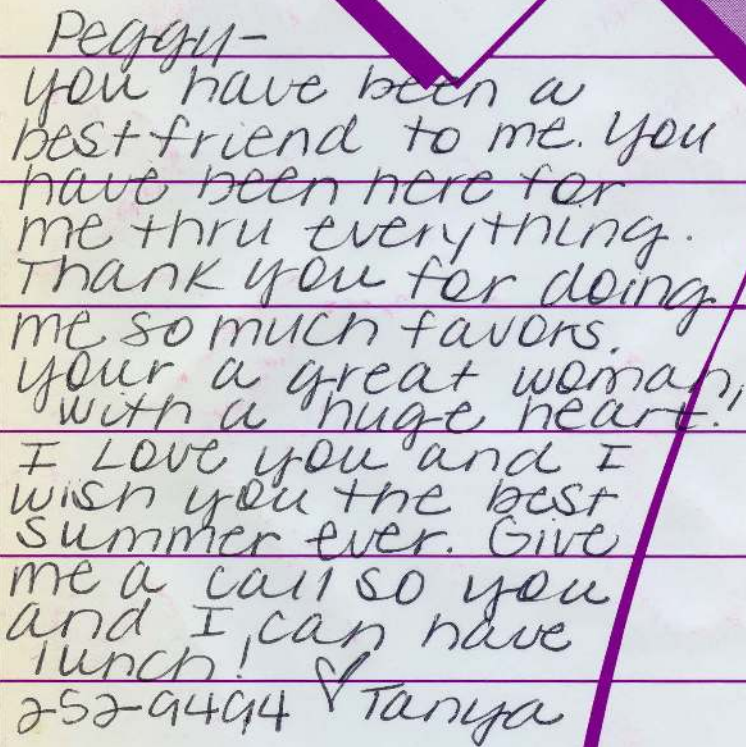 Peggy-
you have been a
best friend to me. you
have been here for
me thru everything.
Thank you for doing
me so much favors.
your a great woman,
with a huge heart!
I Love you and I
wish you the best
summer ever. Give
me a call so you
and I can have
lunch!
252-9494 ♡ Tanya